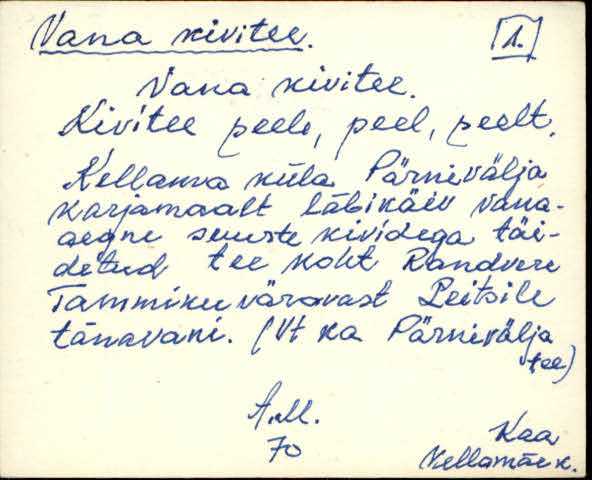 Vana kivitee. [1.]
Vana kivitee.
Kivitee peele, peel, peelt.
Kellamäe küla Pärnivälja
karjamaalt läbikäiv vana-
aegne suurte kividega täi-
detud tee koht Randvere
Tammiku väravast Leitsile
tänavani. (Vt ka Pärnivälja
tee)
A.M.
70
Kaa
Kellamäe k.